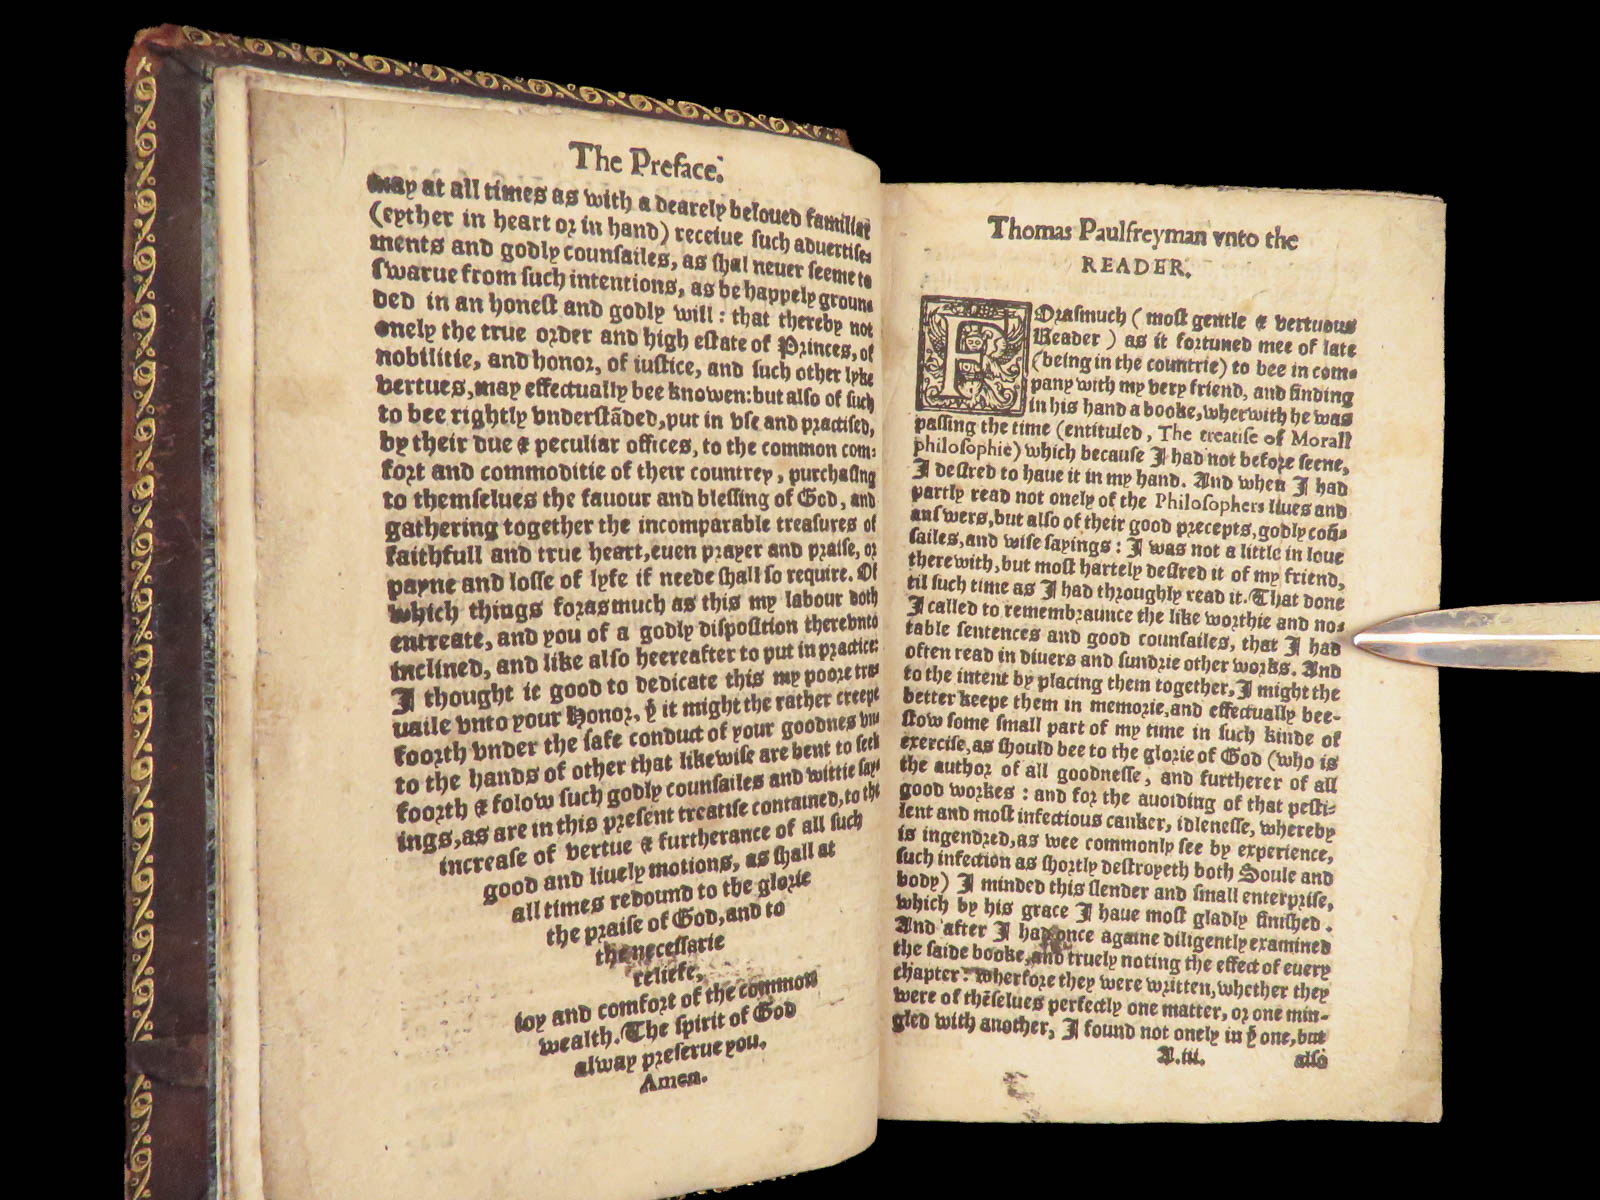 The Preface.
may at all times as with a dearely beloued familiar
(eyther in heart or in hand) receiue such aduertise-
ments and godly counsailes, as shal neuer seeme to
swarue from such intentions, as be happely groun-
ded in an honest and godly will: that thereby not
onely the true order and high estate of Princes, of
nobilitie, and honor, of iustice, and such other lyke
vertues, may effectually bee knowen: but also of such
to bee rightly vnderstãded, put in vse and practised,
by their due & peculiar offices, to the common com-
fort and commoditie of their countrey, purchasing
to themselues the fauour and blessing of God, and
gathering together the incomparable treasures of
faithfull and true heart, euen prayer and praise, or
payne and losse of lyfe if neede shall so require. Of
which things forasmuch as this my labour doth
entreate, and you of a godly disposition therevnto
inclined, and like also heereafter to put in practice:
I thought it good to dedicate this my poore tra-
uaile vnto your Honor, ẏ it might the rather creepe
foorth vnder the safe conduct of your goodnes vn-
to the hands of other that likewise are bent to seek
foorth & folow such godly counsailes and wittie say-
ings, as are in this present treatise contained, to the
increase of vertue & furtherance of all such
good and liuely motions, as shall at
all times redound to the glorie
the praise of God, and to
the necessarie
reliefe,
ioy and comfort of the common
wealth. The spirit of God
alway preserue you.
Amen.
Thomas Paulfreyman vnto the
READER.
FOrasmuch (most gentle & vertuous
Reader) as it fortuned mee of late
(being in the countrie) to bee in com-
pany with my very friend, and finding
in his hand a booke, wherwith he was
passing the time (entituled, The treatise of Morall
philosophie) which because I had not before seene,
I desired to haue it in my hand. And when I had
partly read not onely of the Philosophers liues and
answers, but also of their good precepts, godly coũ-
sailes, and wise sayings: I was not a little in loue
therewith, but most hartely desired it of my friend,
til such time as I had throughly read it. That done
I called to remembraunce the like worthie and no-
table sentences and good counsailes, that I had
often read in diuers and sundrie other works. And
to the intent by placing them together, I might the
better keepe them in memorie, and effectually bee-
stow some small part of my time in such kinde of
exercise, as should bee to the glorie of God (who is
the author of all goodnesse, and furtherer of all
good workes: and for the auoiding of that pesti-
lent and most infectious canker, idlenesse, whereby
is ingendred, as wee commonly see by experience,
such infection as shortly destroyeth both Soule and
body) I minded this slender and small enterprise,
which by his grace I haue most gladly finished.
And after I had once againe diligently examined
the saide booke, and truely noting the effect of euery
chapter: wherfore they were written, whether they
were of thẽselues perfectly one matter, or one min-
gled with another, I found not onely in ẏ one, but
A.iii. also